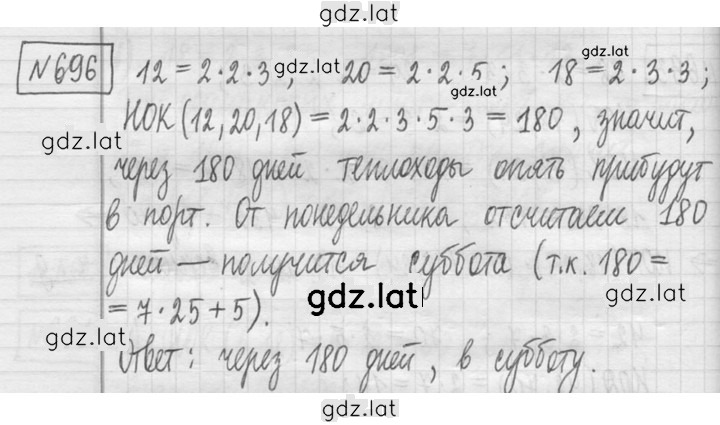 gdz.lat
№696 12 = 2·2·3, gdz.lat 20 = 2·2·5; gdz.lat 18 = 2·3·3; gdz.lat
НОК (12,20,18) = 2·2·3·5·3 = 180, значит,
gdz.lat
через 180 дней теплоходы опять прибудут
в порт. От понедельника отсчитаем 180
дней — получится суббота (т.к. 180 =
gdz.lat gdz.lat
= 7·25+5).
gdz.lat
Ответ: через 180 дней, в субботу.
gdz.lat